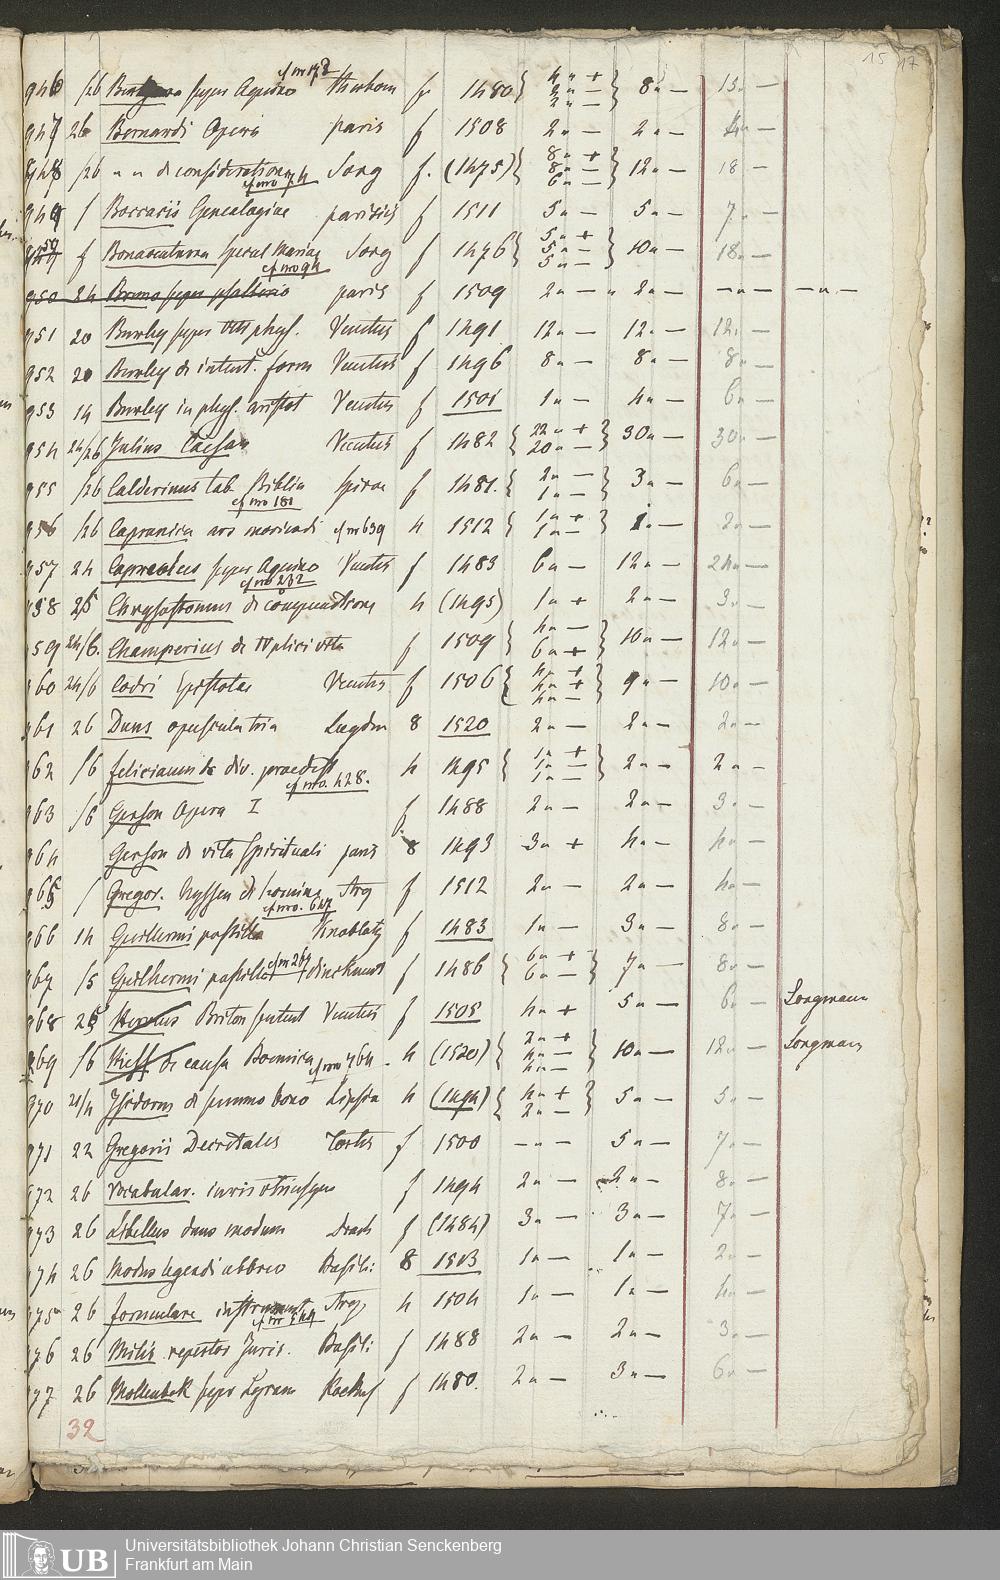 15 17
cf nro 178
946 /26 super Aquino f 1480 { 4 " + 2 " — 2 " — } 8 " — 15 " —
947 26 Bernardi Opera paris f 1508 2 " — 2 " — 4 " —
948 /26 " " de consideratione Sorg f. (1475) { 8 " + 8 " — 6 " — } 12 " — 18 —
949 / Boccacii Genealogiae parisiis f 1511 5 " — 5 " — 7 " —
f Bonaventura specul Mariae Sorg f 1476 { 5 " + 5 " — 5 " — } 10 " — 18 " —
cf nro 94
950 24 Bruno super psalterio paris f 1509 2 " — " 2 " — — " — — " —
951 20 Burley super phys. Venetiis f 1491 12 " — 12 " — 12 " —
952 20 Burley de intent. form Venetiis f 1496 8 " — 8 " — 8 " —
953 14 Burley in phys. aristot Venetiis f 1501 1 " — 4 " — 6 " —
954 24/26 Julius Caesar Venetiis f 1482 { 22 " + 20 " — } 30 " — 30 " —
955 /26 Calderinus tab Biblia spirae f 1481. { 2 " — 1 " — } 3 " — 6 " —
cf nro 181
956 /26 Capranica ars moriendi cf nro 639 4 1512 { 1 " + 1 " — } 1 " — 2 " —
957 24 Capreolus super Aquino Venetiis f 1483 6 " — 12 " — 24 " —
cf nro 232
958 25 Chrysostomus de compunctione 4 (1495) 1 " + 2 " — 3 " —
959 24/6. Champerius de IVplici vita f 1509 { 4 " — 6 " + } 10 " — 12 " —
960 24/6 Codri Epistolae Venetiis f 1506 { 4 " + 4 " + 4 " — } 9 " — 10 " —
961 26 Duns opuscula tria Lugdun 8 1520 2 " — 2 " — 2 " —
962 /6 felicianum de div. praedest 4 1495 { 1 " + 1 " — 1 " — } 2 " — 2 " —
cf nro. 428.
963 /6 Gerson Opera I f 1488 2 " — 2 " — 3 " —
964 Gerson de vita spirituali paris 8 1493 3 " + 4 " — 4 " —
965 / Gregor. Nyssen de homine Arg f 1512 2 " — 2 " — 4 " —
cf nro. 647
966 14 Guillermi postilla Knoblotz f 1483 1 " — 3 " — 8 " —
967 /5 Guilhermi postille cf nr 269 dinckmut f 1486 { 6 " + 6 " — } 7 " — 8 " —
968 25 Briton sentent Venetiis f 1505 4 " + 5 " — 6 " — Longmann
969 /6 de causa Boemica cf nro 764 4 (1520) { 2 " + 4 " — 4 " — } 10 " — 12 " — Longmann
970 24/4 Isidorus de summo bono Lipsia 4 (1494) { 4 " + 2 " — } 5 " — 5 " —
971 22 Gregorii Decretales Tortis f 1500 — " — 5 " — 7 " —
972 26 Vocabular. iuris utriusque f 1494 2 " — 2 " — 8 " —
973 26 Libellus dans modum Drach f (1484) 3 " — 3 " — 7 " —
974 26 Modus legendi abbrev Basili: 8 1503 1 " — 1 " — 2 " —
975 26 formulare instrument Arg. 4 1504 1 " — 1 " — 4 " —
976 26 Milis repertor Juris. Basili: f 1488 2 " — 2 " — 3 " —
977 26 Mollenbek super Lyram f 1480. 2 " — 3 " — 6 " —
32
UB Universitätsbibliothek Johann Christian Senckenberg
Frankfurt am Main